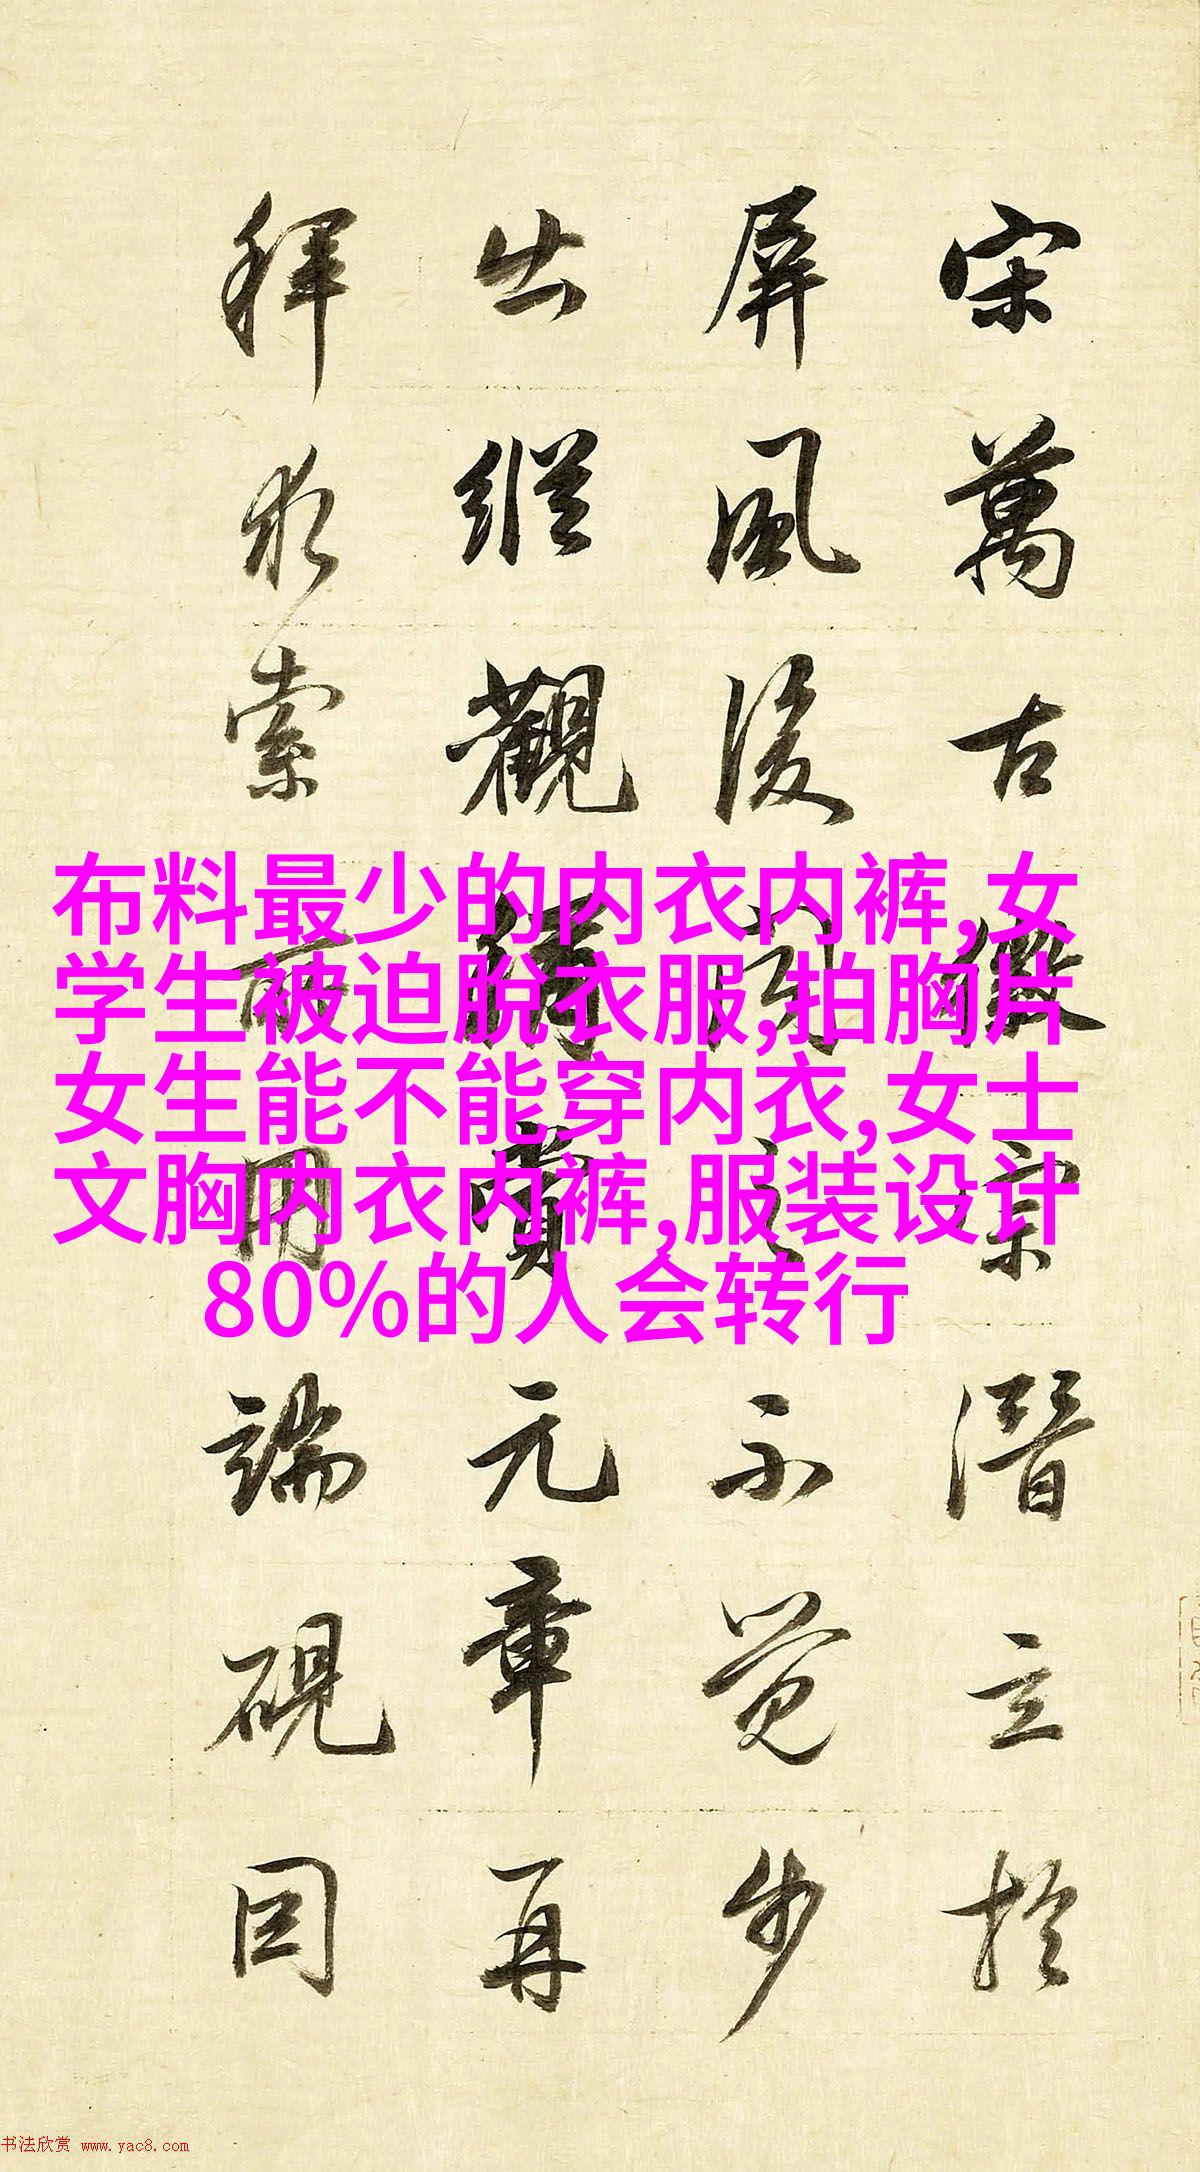 宋萬古徽宗潛立於
屏風後聞之不覺步
出縱觀稱賞元章再
拜求索所用端硯因
布料最少的内衣内裤,女
学生被迫脱衣服,拍胸片
女生能不能穿内衣,女士
文胸内衣内裤,服装设计
80%的人会转行
书法欣赏 www.yac8.com